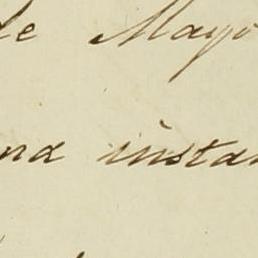 de Mayo
una instan